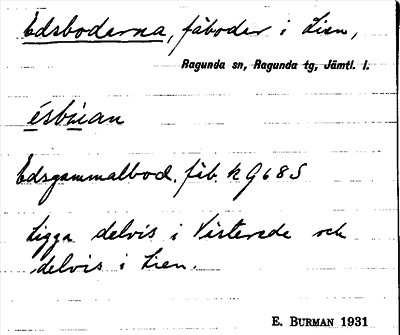 Edsboderna, fäboder i Lien,
Ragunda sn, Ragunda tg, Jämtl. l.
ésbúan
Edsgammalbod. fäb. k G68S
Ligga delvis i Västerede och
delvis i Lien.
E. BURMAN 1931